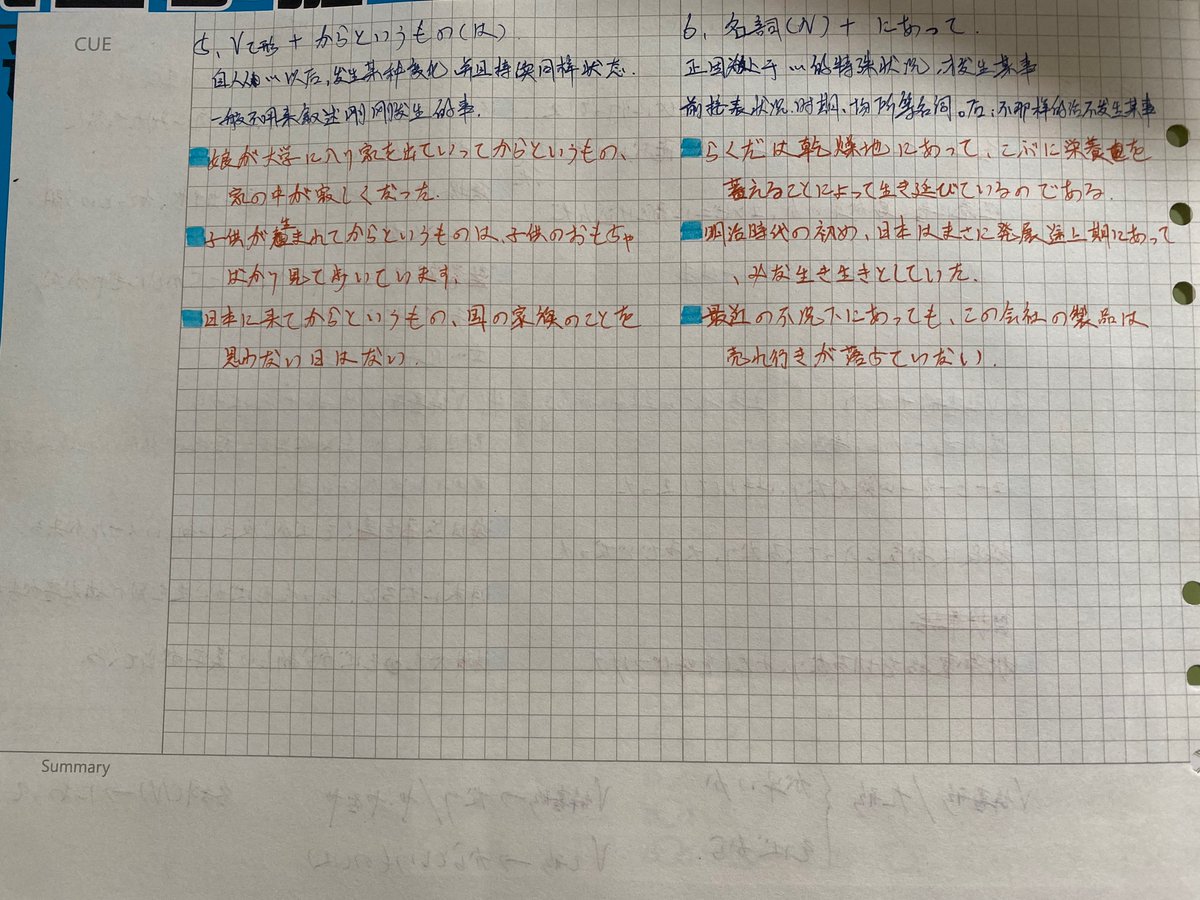 CUE
5、Vて形 + からというもの(は)
自从…以后,发生某种变化 并且持续同样状态.
一般不用来叙述刚刚发生的事.
娘が大学に入り家を出ていってからというもの、
家の中が寂しくなった.
子供が生まれてからというものは、子供のおもちゃ
ばかり見て歩いています.
日本に来てからというもの、国の家族のことを
思わない日はない.
6、名詞(N) + にあって.
正因处于…的特殊状况,才发生某事
前接表状况.时期、场所等名词。后:不那样的话不发生某事
らくだは乾燥地にあって、こぶに栄養を
蓄えることによって生き延びているのである.
明治時代の初め、日本はまさに発展途上期にあって
、みな生き生きとしていた.
最近の不況下にあっても、この会社の製品は
売れ行きが落ちていない.
Summary